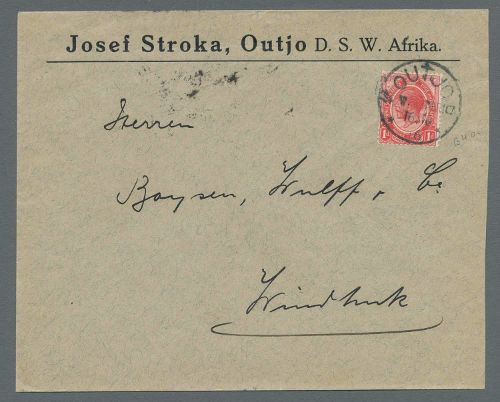 Josef Stroka, Outjo D. S. W. Afrika.
OUTJO
Herren
Boysen, Wulff, & Co
Windhuk